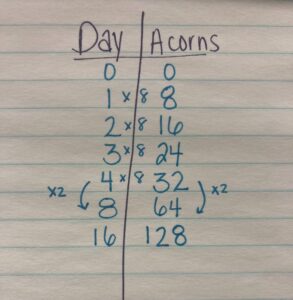 Day Acorns
0 0
1 ×8 8
2 ×8 16
3 ×8 24
4 ×8 32
×2 8 64 ×2
16 128